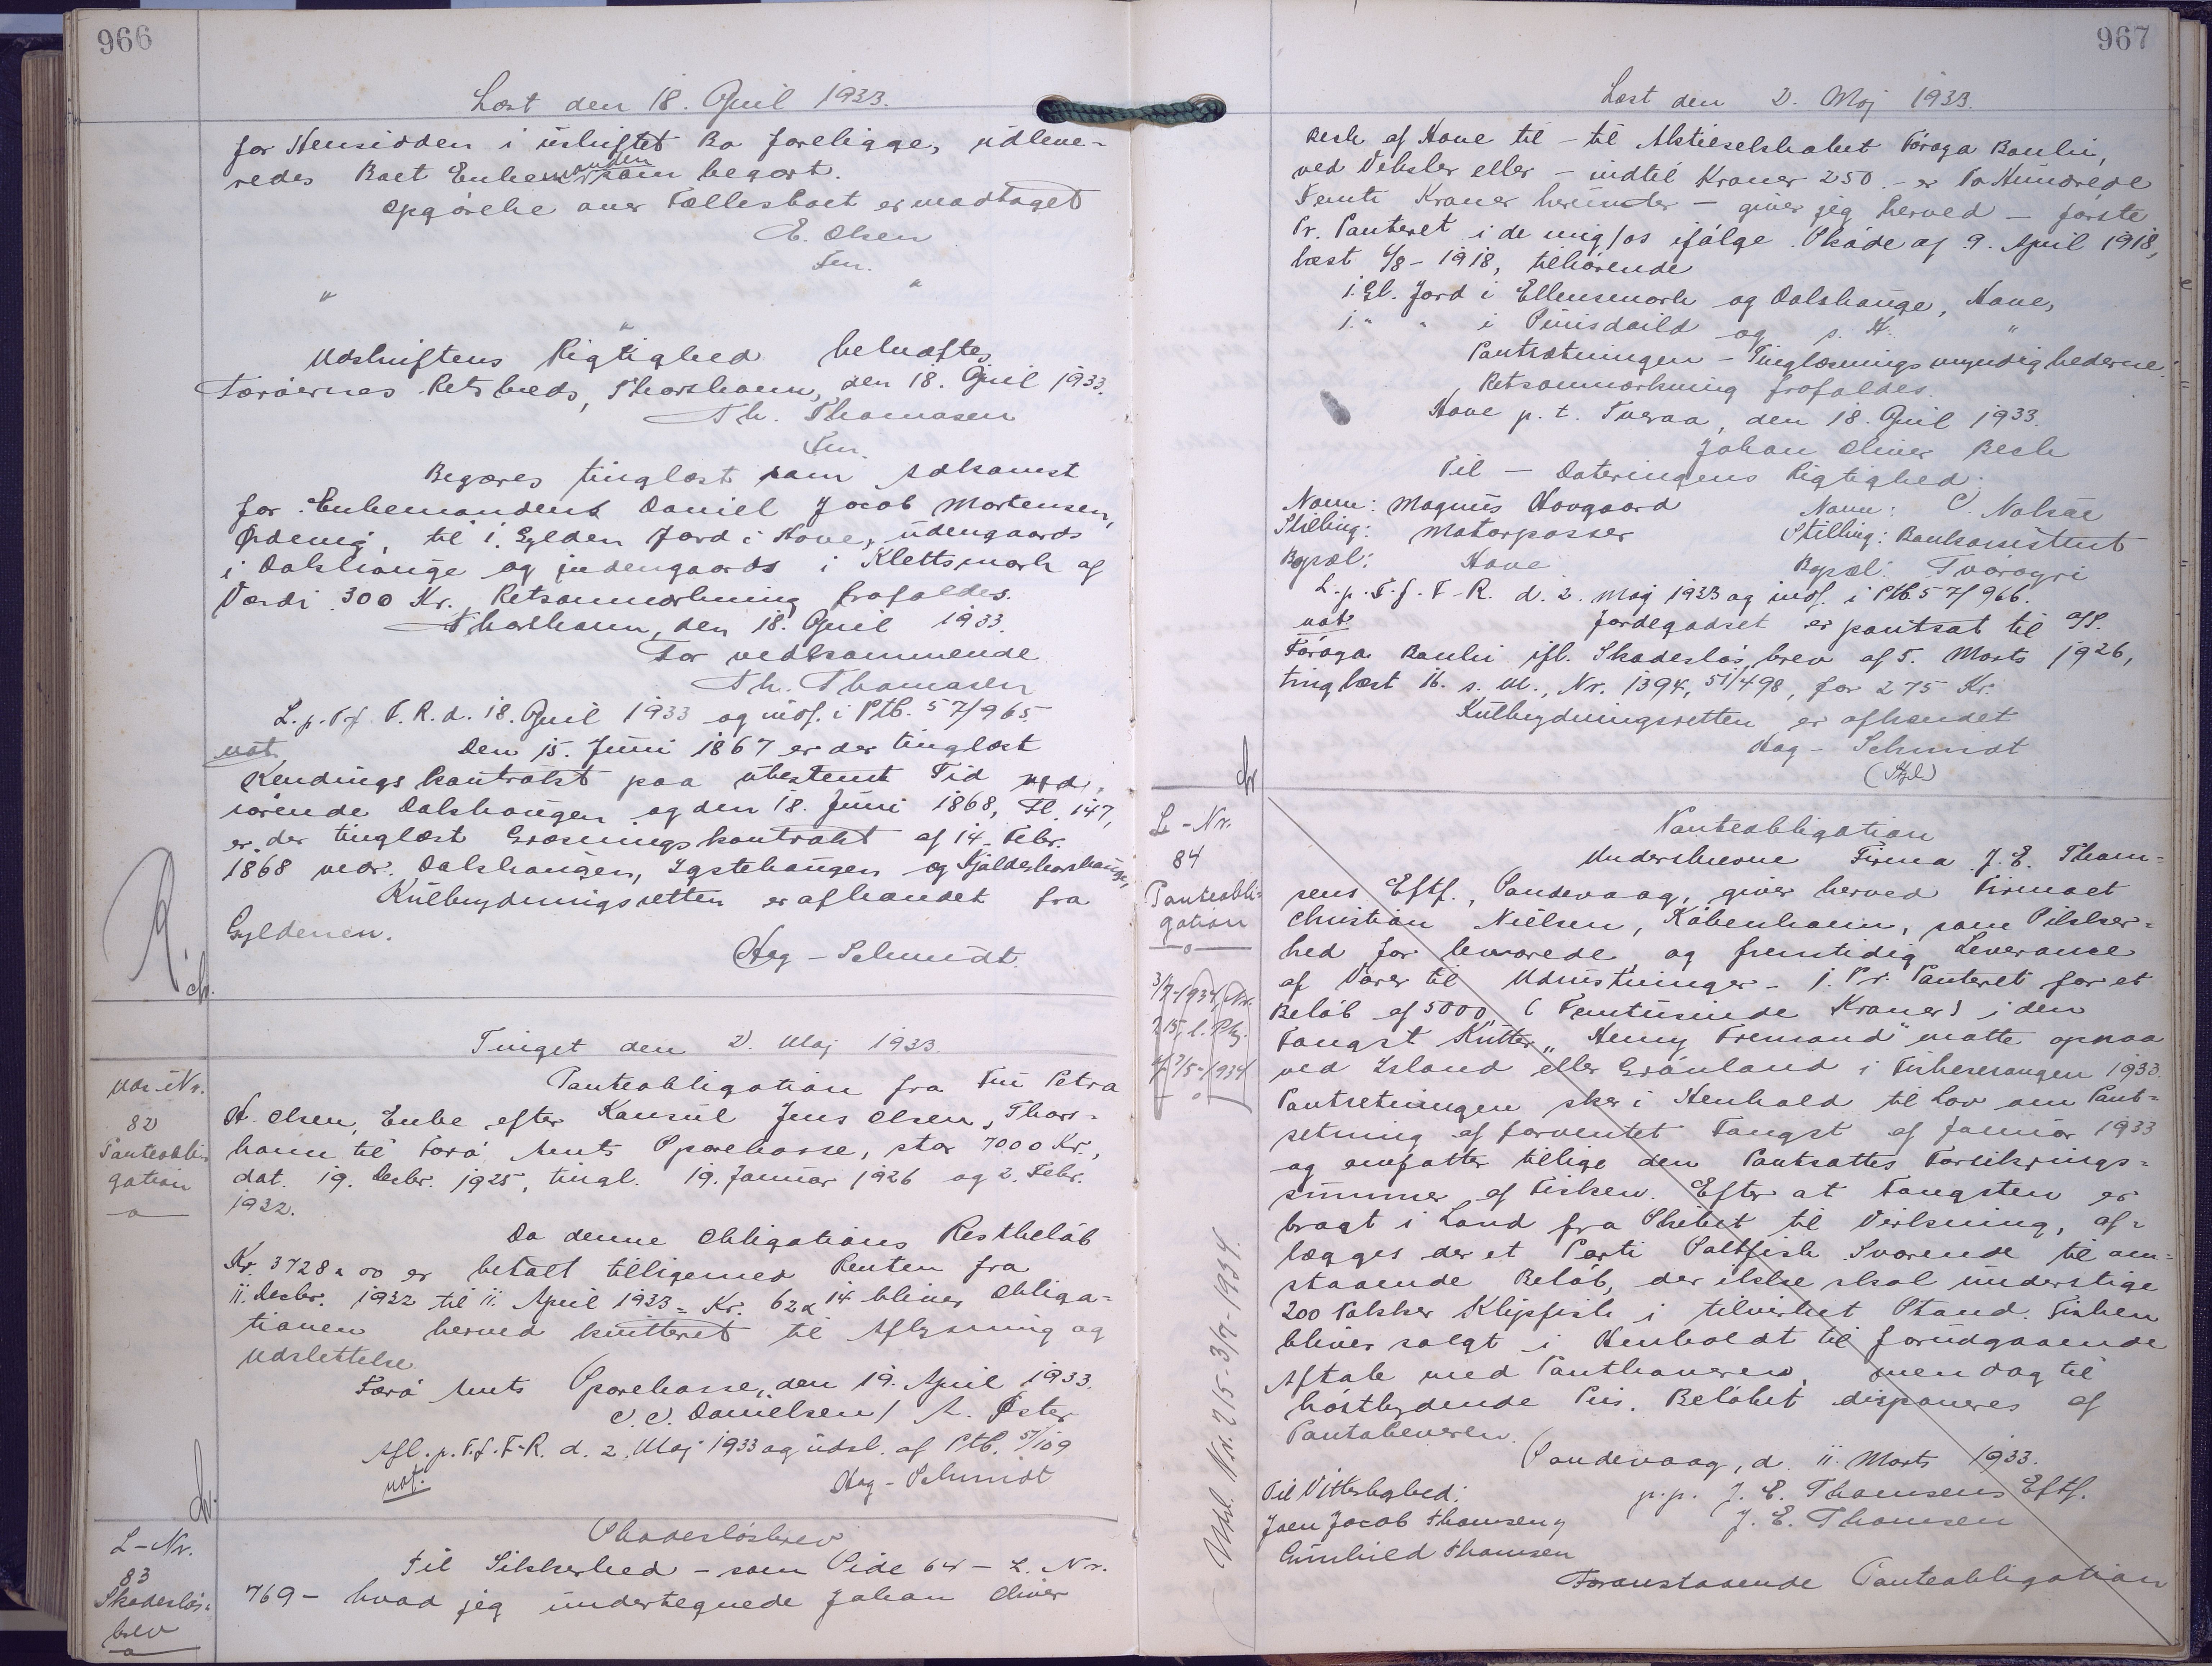 966
Læst den 18. April 1933.
for Hensidden i uskiftet Bo foreligge, udleve-
redes Boet Enkemanden som begært.
Opgørelse over Fællesboet er modtaget
E. Olsen
Fm.
" "
"
Udskriftens Rigtighed bekræftes
Færøernes Retskreds, Thorshavn, den 18. April 1933.
Th. Thomasen
Fm.
Begæres tinglæst som Adkomst
for Enkemanden Daniel Jacob Mortensen,
Ørdevig, til 1 Gylden Jord i Hove, udengaards
i Dalshauge og indengaards i Klettsmørk af
Værdi 300 Kr. Retsanmærkning frafaldes.
Thorshavn, den 18. April 1933.
For vedkommende
Th. Thomasen
L. p. T. f. F. R. d. 18. April 1933 og indf. i Ptb. 57/965
not. Den 15. Juni 1867 er der tinglæst
Kendingskontrakt paa ubestemt Tid ved-
rørende Dalshaugen og den 18. Juni 1868, Fl. 147,
er der tinglæst Græsningskontrakt af 14. Febr.
1868 vedr. Dalshaugen, Ystehaugen og
Kulbrydningsretten er afhændet fra
Gyldenen.
Høg-Schmidt.
R.
Tinget den 2. Maj 1933.
Udsl. Nr.
82
Panteobli-
gation
Panteobligation fra Fru Petra
H. Olsen, Enke efter Konsul Jens Olsen, Thors-
havn til Færø Amts Sparekasse, stor 7000 Kr.,
dat. 19. Decbr. 1925, tingl. 19. Januar 1926 og 2. Febr.
1932.
Da denne Obligations Restbeløb
Kr. 3728 00 er betalt tilligemed Renten fra
11. Decbr. 1932 til 11. April 1933 = Kr. 62 14 bliver Obliga-
tionen herved kvitteret til Aflysning og
Udslettelse.
Færø Amts Sparekasse, den 19. April 1933.
C. C. Danielsen / A. Øster
Afl. p. T. f. F. R. d. 2. Maj 1933 og udsl. af Ptb. 51/109
not. Høg-Schmidt
L-Nr.
83
Skadesløs-
brev
Skadesløsbrev
Til Sikkerhed - som Side 64 - L. Nr.
769 - hvad jeg undertegnede Johan Oliver
967
Læst den 2. Maj 1933.
Bech af Hove til - til Aktieselskabet Føroya Banki,
ved Veksler eller - indtil Kroner 250.- er To Hundrede
Femti Kroner herunder - giver jeg herved - første
Pr. Panteret i de mig/os ifølge Skøde af 9. April 1918,
læst 6/8-1918, tilhørende
1 Gl. Jord i Ellensmørk og Dalshauge, Hove,
1 " " i og s. H. "
Pantsætningen - Tinglæsningsmyndighederne.
Retsanmærkning frafaldes.
Hove p. t. Tveraa, den 18. April 1933.
Johan Oliver Bech
Til - Dateringens Rigtighed:
Navn: Magnus Hovgaard Navn: C. Nolsøe
Stilling: Motorpasser Stilling: Bankassistent
Bopæl: Hove Bopæl: Tvøroyri
L. p. T. f. F. R. d. 2. Maj 1933 og indf. i Ptb. 57/966.
not. Jordegodset er pantsat til A/S.
Føroya Banki ifl. Skadesløsbrev af 5. Marts 1926,
tinglæst 16. s. M., Nr. 1394, 51/498, for 275 Kr.
Kulbrydningsretten er afhændet
Høg-Schmidt
L-Nr.
84
Panteobli-
gation
3/7-1934, Nr.
215, l. Pkg.
Udsl. Nr. 215 - 3/7-1934.
Panteobligation
Underskrevne Firma J. E. Thom-
sens Eftf., Sandevaag, giver herved Firmaet
Christian Nielsen, København, som Sikker-
hed for leverede og fremtidig Leverance
af Varer til Udrustninger - 1. Pr. Panteret for et
Beløb af 5000, (Femtusinde Kroner) i den
Fangst Kutter "Henry Fremand" maatte opnaa
ved Island eller Grønland i Fiskesæsongen 1933.
Pantsetningen sker i Henhold til Lov om Pant-
setning af forventet Fangst af Januar 1933
og omfatter tillige den Pantsattes Forsikrings-
summer af Fisken. Efter at Fangsten er
bragt i Land fra Skibet til Virkning, af-
lægges der et Parti Saltfisk svarende til om-
staaende Beløb, der ikke skal understige
200 Pakker Klipfisk i tilvirket Stand. Fisken
bliver solgt i Henholdt til forudgaaende
Aftale med Panthaveren, men dog til
høistbydende Pris. Beløbet disponeres af
Pantehaveren.
Sandevaag, d. 11. Marts 1933.
Til Vitterlighed: p.p. J. E. Thomsens Eftf.
Joen Jacob Thomsen J. E. Thomsen
Gunhild Thomsen
Foranstaaende Panteobligation